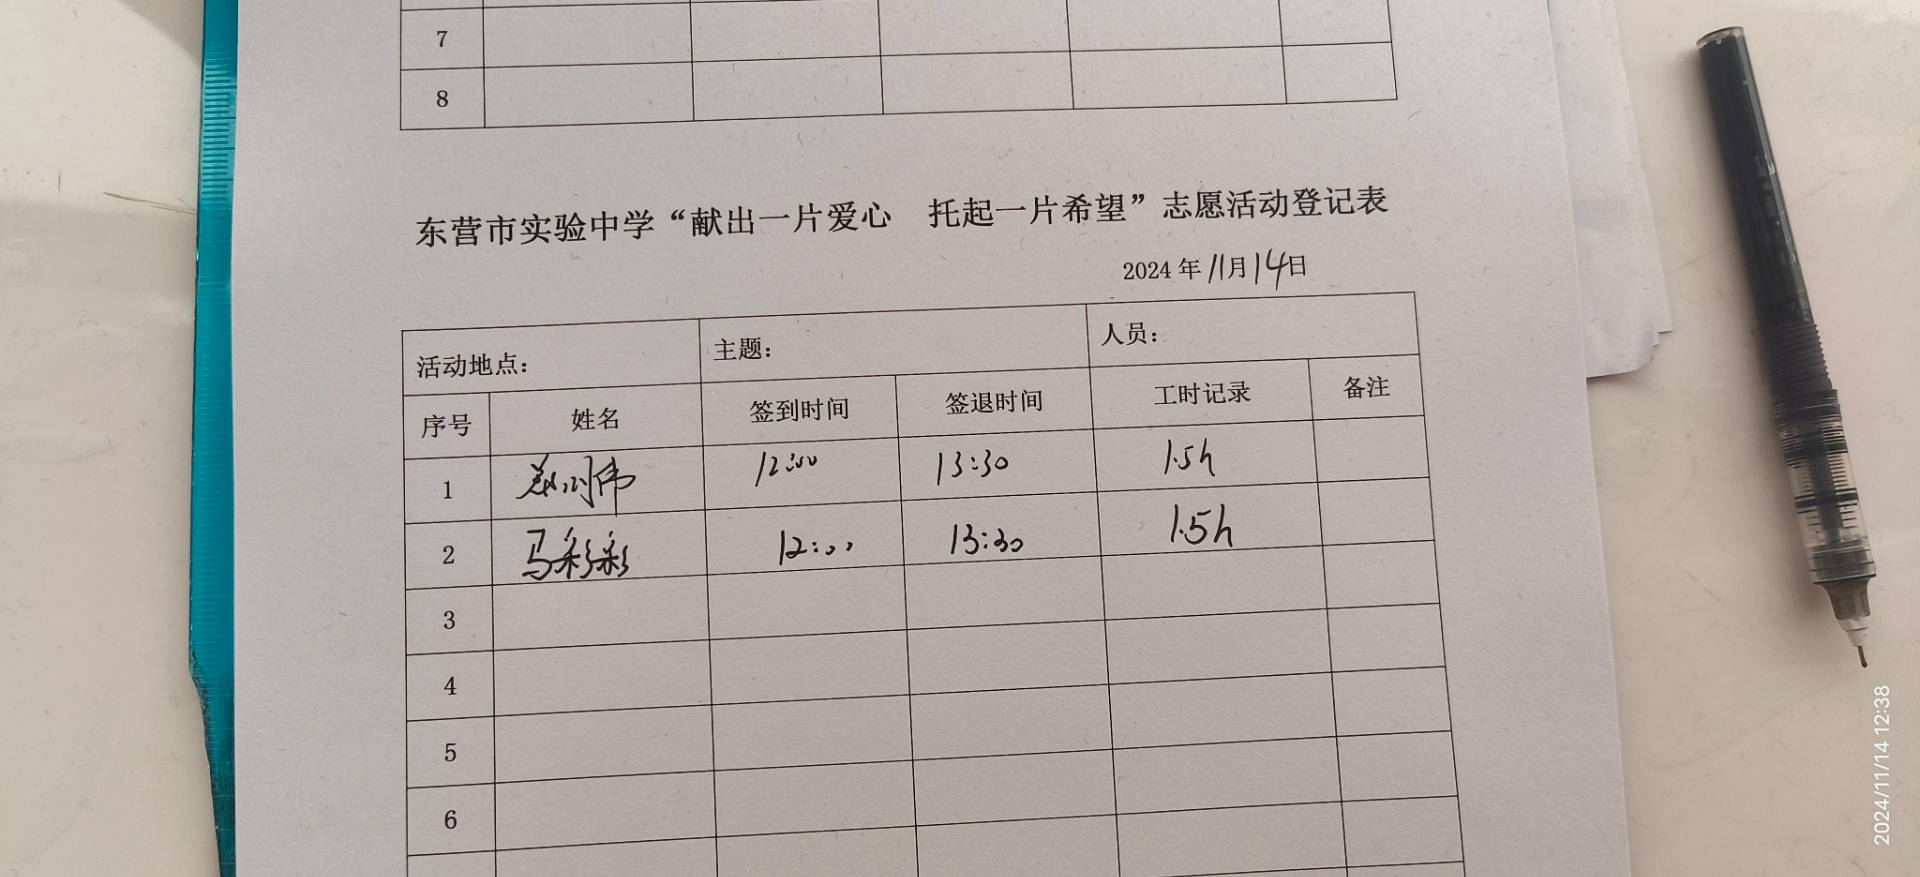 7
8
东营市实验中学“献出一片爱心 托起一片希望”志愿活动登记表
2024年11月14日
活动地点： 主题： 人员：
序号 姓名 签到时间 签退时间 工时记录 备注
1 12:00 13:30 1.5h
2 马彩彩 12:00 13:30 1.5h
3
4
5
6
2024/11/14 12:38